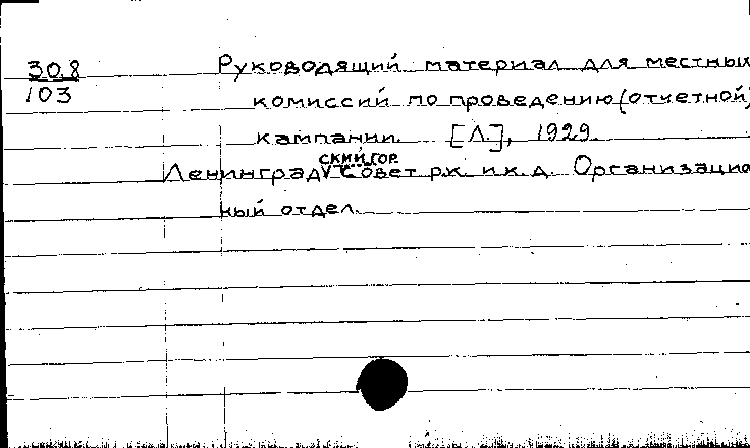 30.8
103
Руководящий материал для местных
комиссий по проведению (отчетной)
кампании. [Л.], 1929.
Ленинградский гор. Совет р.к. и к.д. Организацио
ный отдел.